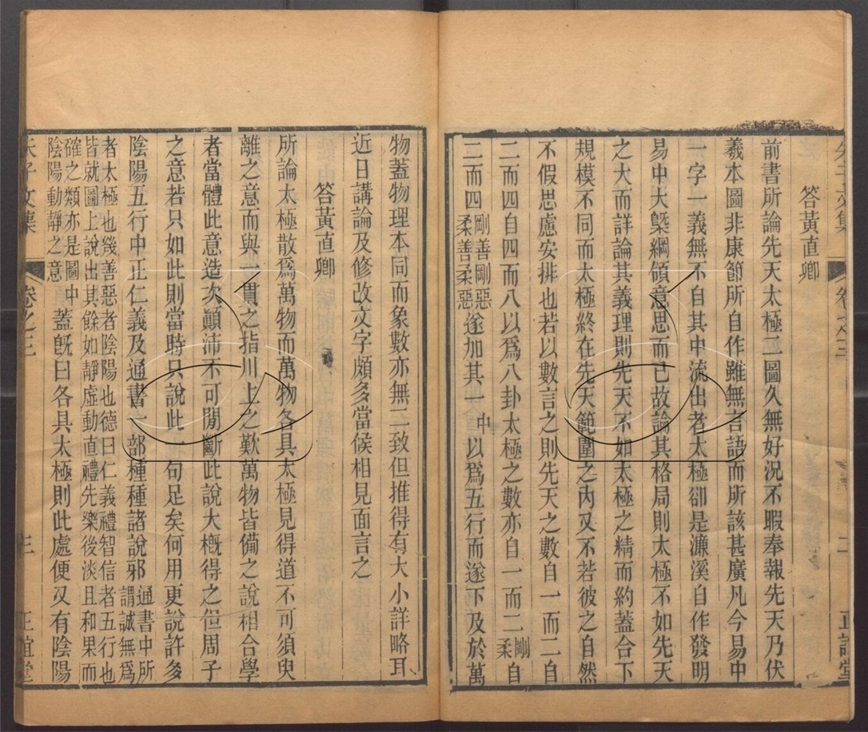 答黃直卿
前書所論先天太極二圖久無好況不暇奉報先天乃伏
羲本圖非康節所自作雖無言語而所該甚廣凡今易中
一字一義無不自其中流出者太極卻是濂溪自作發明
易中大槩綱領意思而已故論其格局則太極不如先天
之大而詳論其義理則先天不如太極之精而約蓋合下
規模不同而太極終在先天範圍之內又不若彼之自然
不假思慮安排也若以數言之則先天之數自一而二自
二而四自四而八以爲八卦太極之數亦自一而二剛柔自
二而四剛善剛惡柔善柔惡遂加其一中以爲五行而遂下及於萬
物蓋物理本同而象數亦無二致但推得有大小詳略耳
近日講論及修改文字頗多當候相見面言之
答黃直卿
所論太極散爲萬物而萬物各具太極見得道不可須臾
離之意而與一貫之指川上之歎萬物皆備之說相合學
者當體此意造次顚沛不可閒斷此說大槪得之但周子
之意若只如此則當時只說此一句足矣何用更說許多
陰陽五行中正仁義及通書一部種種諸說邪通書中所謂誠無爲
者太極也幾善惡者陰陽也德曰仁義禮智信者五行也
皆就圖上說出其餘如靜虛動直禮先樂後淡且和果而
確之類亦是圖中陰陽動靜之意蓋旣曰各具太極則此處便又有陰陽
朱子文集
卷之三
三
正誼堂
卷之三
二
正誼堂